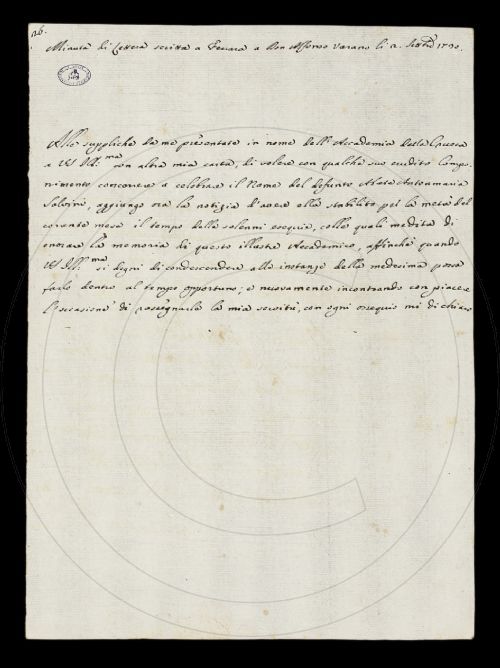 26.
Minuta di Lettera scritta a Ferrara a Don Alfonso Varano li 2. Settre 1730.
Alle suppliche da me presentate in nome dell'Accademia della Crusca
a VS Ill.ma con altra mia carta, di volere con qualche suo erudito Compo-
nimento concorrere a celebrare il Nome del defunto Abate Antonmaria
Salvini, aggiungo ora la notizia d'avere ella stabilito pel la metà del
corrente mese il tempo delle solenni esequie, colle quali medita di
onorare la memoria di questo illustre Accademico, affinché quando
VS Ill.ma si degni di condescendere alle instanze della medesima possa
farlo dentro al tempo opportuno; e nuovamente incontrando con piacere
l'occasione di rassegnarle la mia servitù, con ogni ossequio mi dichiaro